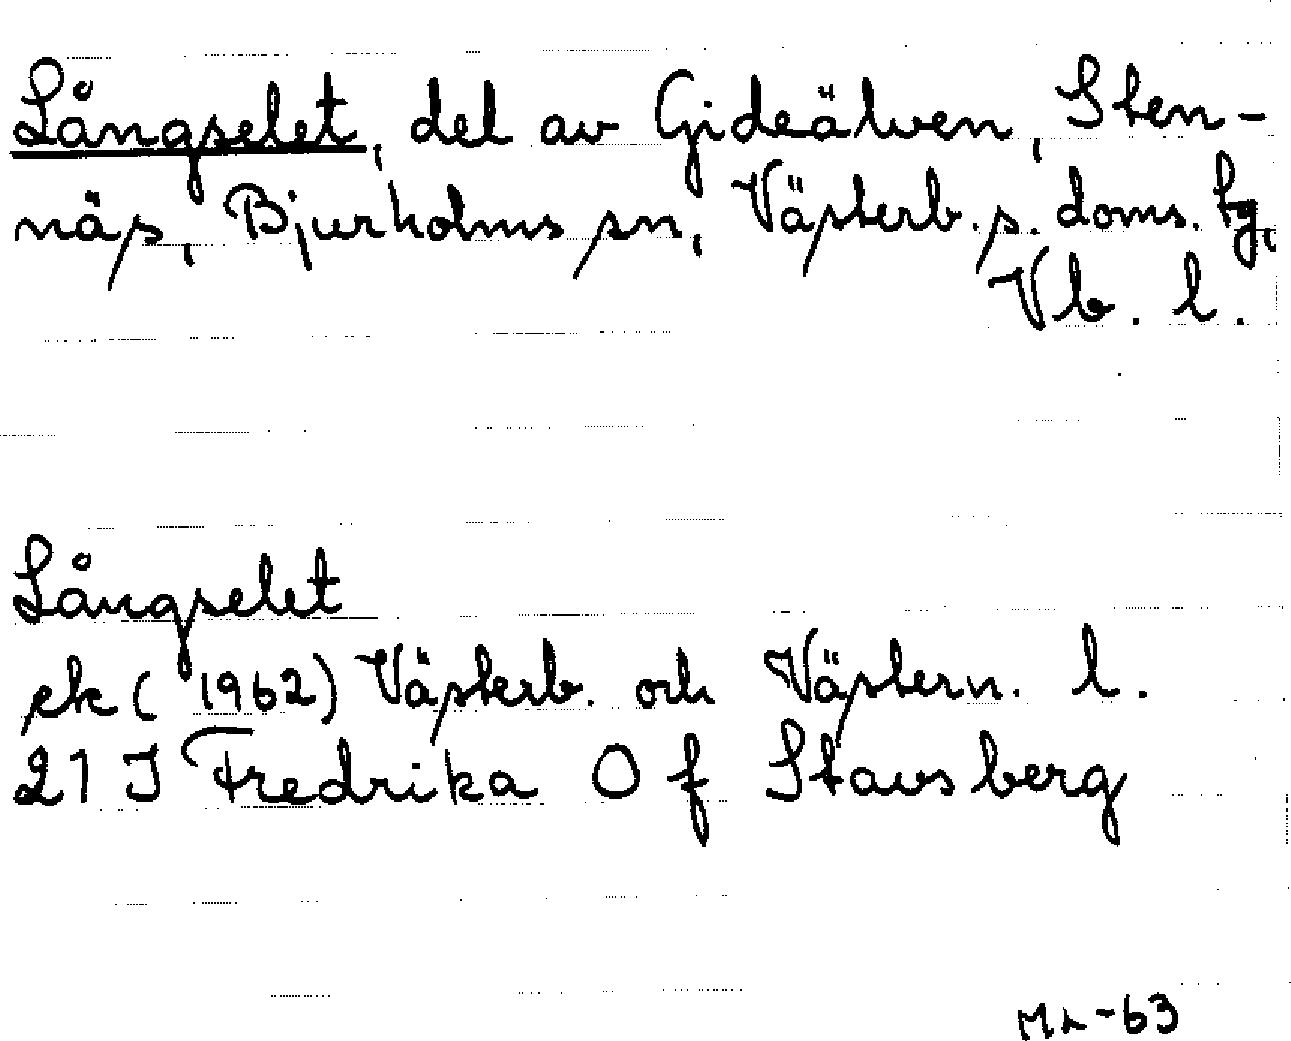 Långselet, del av Gideälven, Sten-
näs, Bjurholms sn, Västerb. s. doms. tg,
Vb. l.
Långselet
ek (1962) Västerb. och Västern. l.
21 J Fredrika 0 f Stavsberg
-63